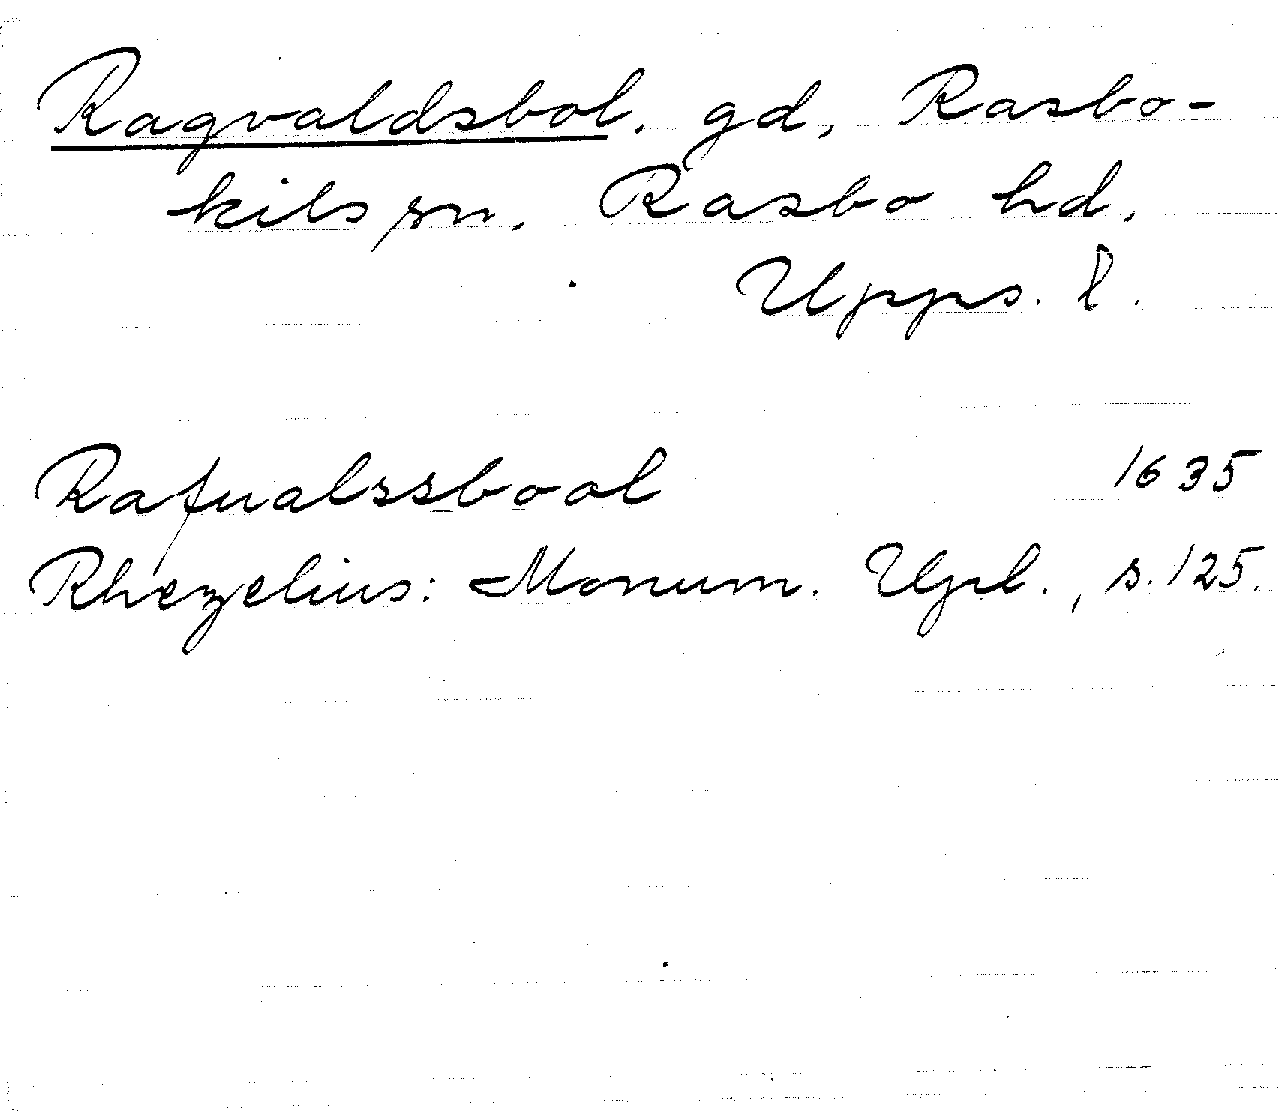 Ragvaldsbol, gd, Rasbo-
kils sn, Rasbo hd,
Upps. l.
Rafualssbool 1635
Rhezelius: Monum. Upl., s. 125.